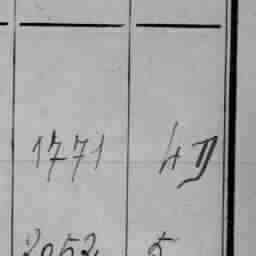 1771 4 D
2052 5